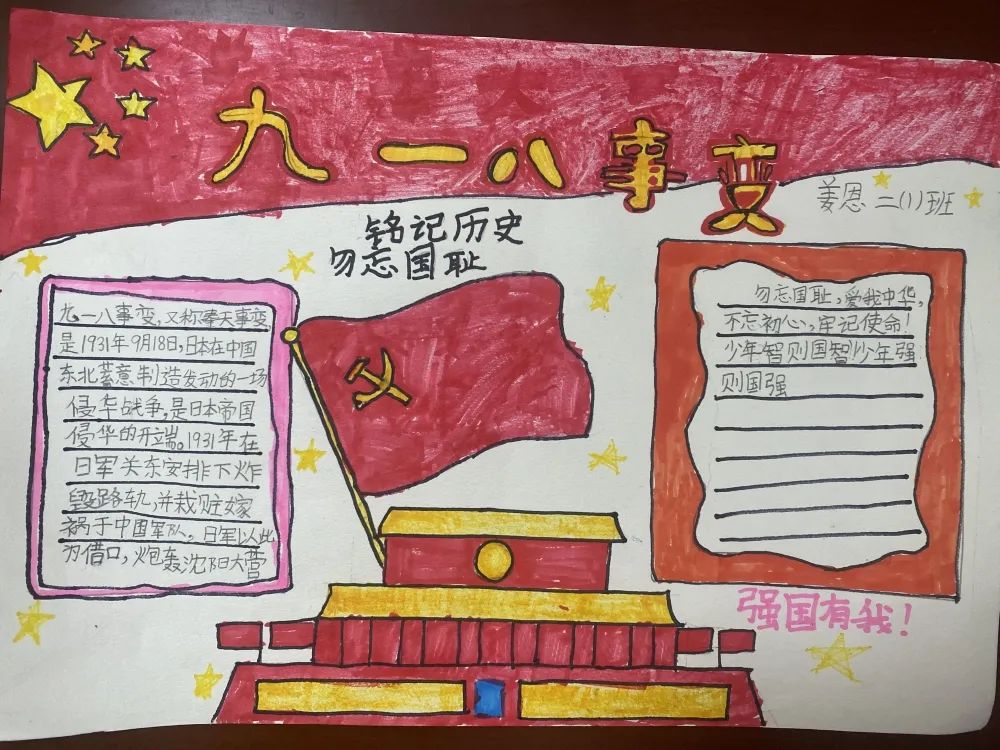 九一八事变
姜恩 二(1)班
铭记历史
勿忘国耻
九一八事变,又称奉天事变
是1931年9月18日,日本在中国
东北蓄意制造发动的一场
侵华战争,是日本帝国
侵华的开端。1931年在
日军关东安排下炸
毁路轨,并栽赃嫁
祸于中国军队。日军以此
为借口,炮轰沈阳大营
勿忘国耻,爱我中华,
不忘初心,牢记使命!
少年智则国智少年强
则国强
强国有我!